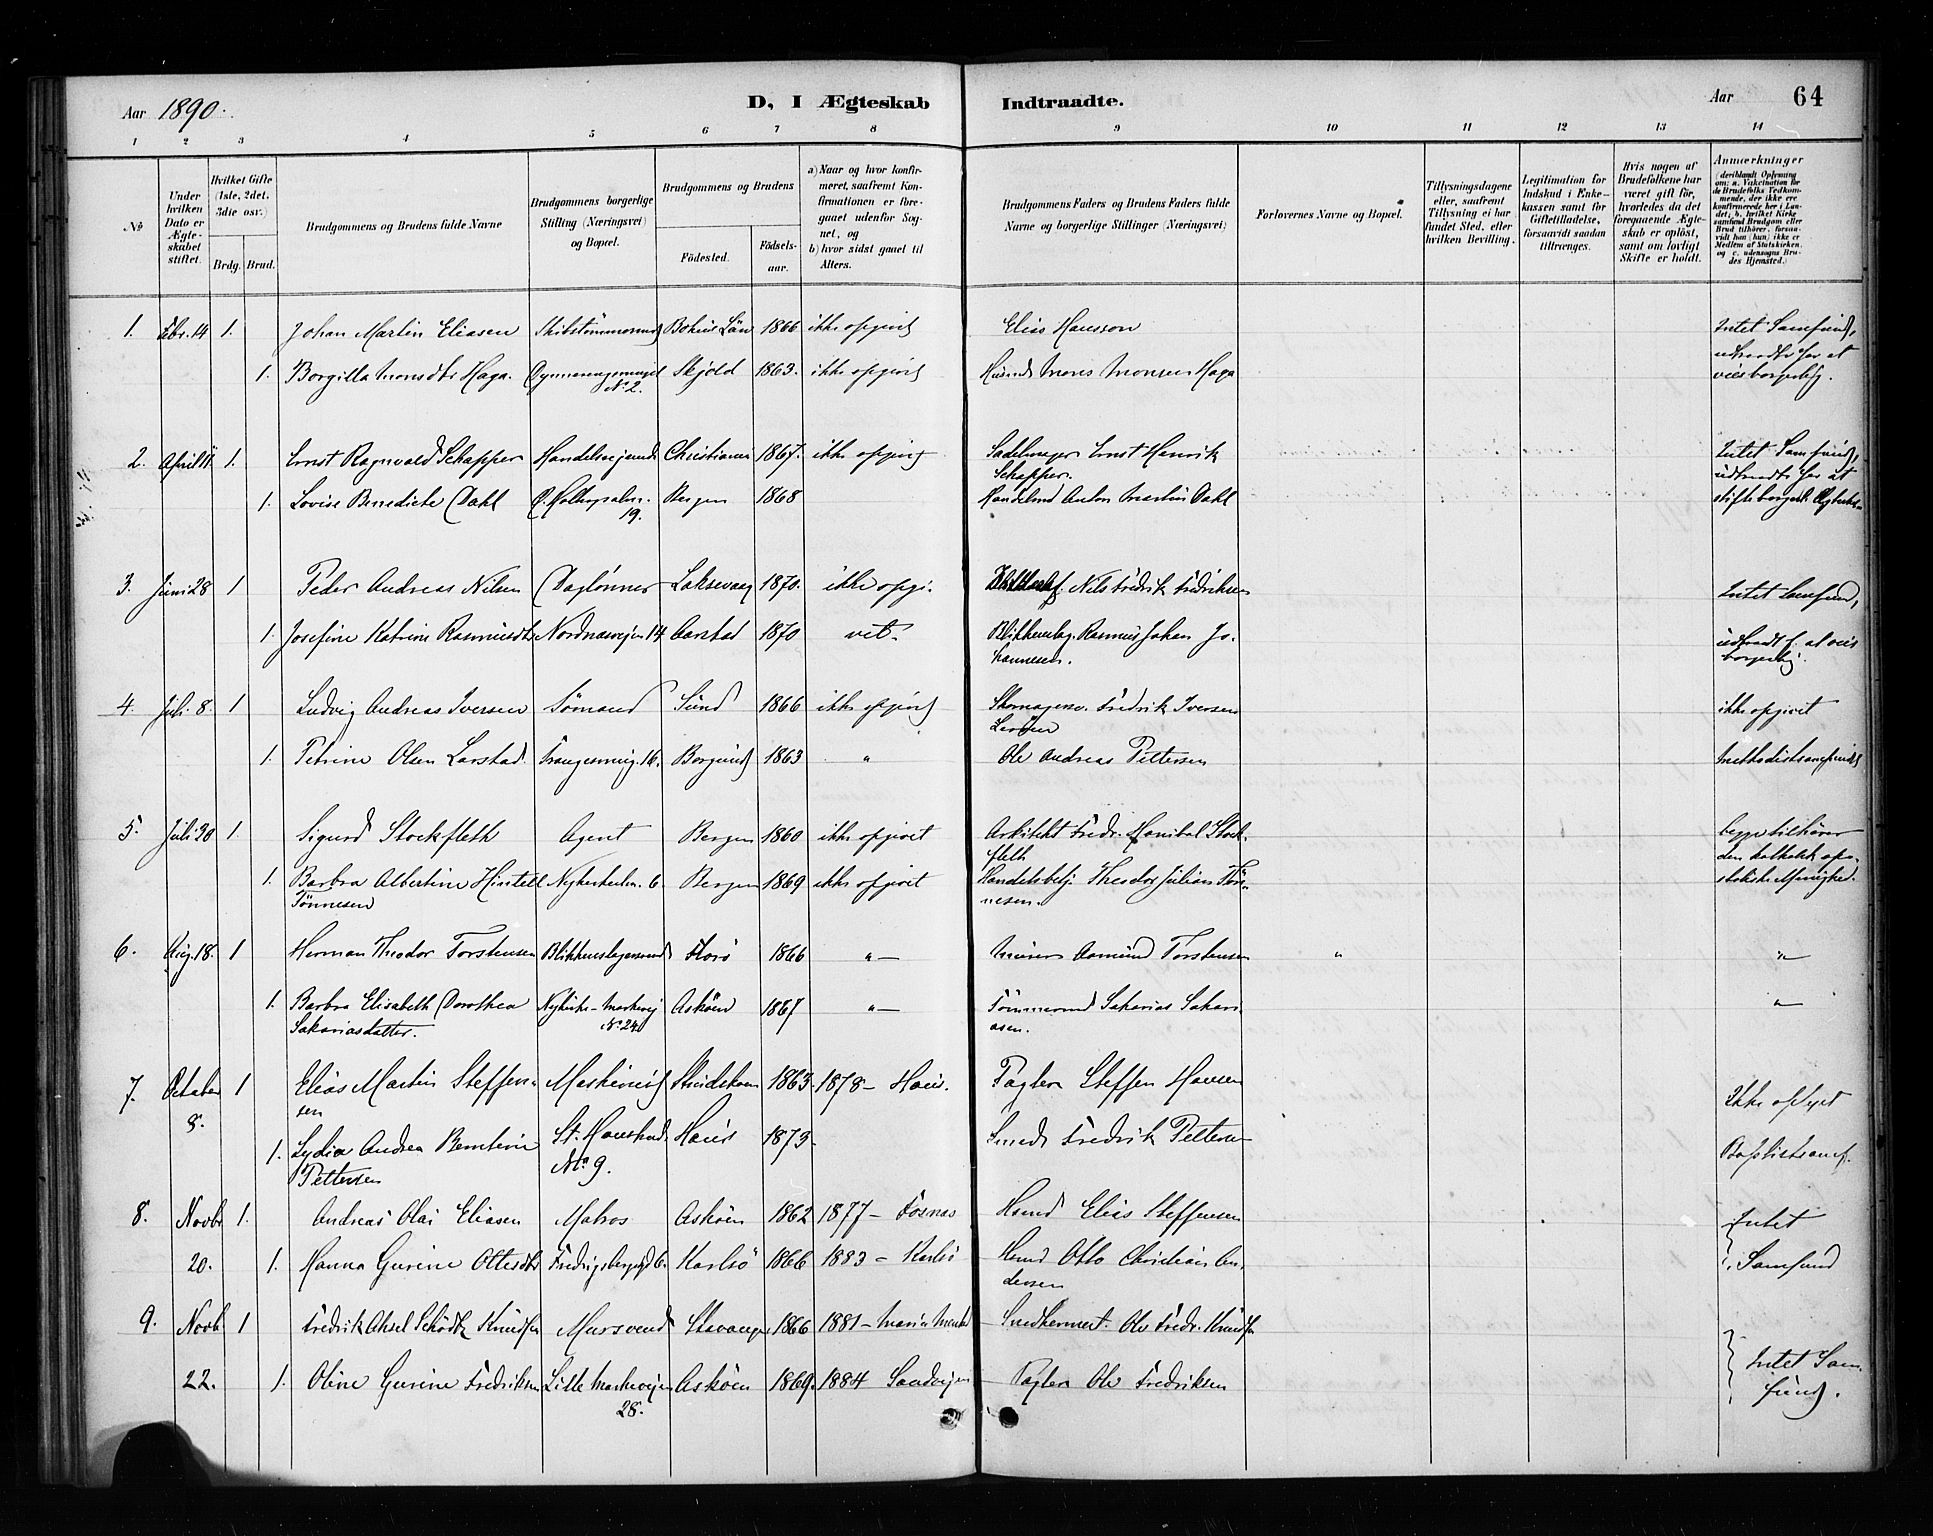 Aar 1890.
D, I Ægteskab Indtraadte.
Aar 64
1 2 3 4 5 6 7 8 9 10 11 12 13 14
№
Under hvilken Dato er Ægteskabet stiftet.
Hvilket Gifte (1ste, 2det, 3die osv.)
Brdg. Brud.
Brudgommens og Brudens fulde Navne
Brudgommens borgerlige Stilling (Næringsvei) og Bopæl.
Brudgommens og Brudens
Fødested. Fødselsaar.
a) Naar og hvor konfirmeret, saafremt Konfirmationen er foregaaet udenfor Sognet, og
b) hvor sidst gaaet til Alters.
Brudgommens Faders og Brudens Faders fulde Navne og borgerlige Stillinger (Næringsvei)
Forlovernes Navne og Bopæl.
Tillysningsdagene eller, saafremt Tillysning ei har fundet Sted, efter hvilken Bevilling.
Legitimation for Indskud i Enkekassen samt for Giftetilladelse, forsaavidt saadan tiltrænges.
Hvis nogen af Brudefolkene har været gift før, hvorledes da det foregaaende Ægteskab er opløst, samt om lovligt Skifte er holdt.
Anmærkninger
(deriblandt Oplysning om: a. Vakcination for de Brudefolks Vedkommende, der ikke ere konfirmerede her i Landet; b. hvilket Kirkesamfund Brudgom eller Brud tilhører, forsaavidt han (hun) ikke er Medlem af Statskirken, og c. udensogns Brudes Hjemsted.)
1. Febr. 14 1. Johan Martin Eliasen Bohus Län 1866 ikke opgivet Elias Hansson Intet Samfund,
1. Borgilla Monsdtr Haga. № 2. Skjold 1863. ikke opgivet Husmd Mons Monsen Haga
2. April 11. 1. Ernst Ragnvald Schapper Christiania 1867. ikke opgivet Sadelmager Ernst Henrik Schapper. Intet Samfund,
1. Lovise Benedicte Dahl 19. Bergen 1868 Anton Martin Dahl
3. Juni 28 1 Peder Andreas Nilsen Daglønner Laksevaag 1870. ikke opgi- Nils Fredrik Fredriksen Intet Samfund,
1. Josefine Katrine Rasmusdtr Nordnæsveien 14 Aarstad 1870 vet. Blikkenslag. Rasmus Johan Johannesen. udtraadt f. at vies borgerlig.
4. Juli 8. 1 Ludvig Andreas Iversen Sømand Sund 1866 ikke opgivet Skomagersv. Fredrik Iversen ikke opgivet
1. Petrine Olsen Larstad. 16. Borgund 1863 " Ole Andreas Pettersen Methodistsamfundet
5. Juli 30 1. Sigurd Stockfleth Agent Bergen 1860 ikke opgivet Arkitekt Fredr. Hanibal Stockfleth begge tilhører
1. Barbra Albertine Hintell Tønnesen 6. Bergen 1869 ikke opgivet Handelsbetj. Theodor Julius Tønnesen. den katholsk apostoliske Menighed.
6. Aug. 18. 1 Herman Theodor Torstensen Blikkenslagersvend Florø 1866 "— Murer Aamund Torstensen " "—
1. Barbra Elisabeth Dorothea Sakariasdatter. № 24 Askøen 1867 "— Tømmermd Sakarias Sakariasen. "—
7. October 8. 1 Elias Martin Steffensen Maskinist 1863. 1878 – Haus. Fagler Steffen Hansen Ikke oplyst
1. Lydia Andrea Berntine Pettersen № 9. Haus 1873. Smed Fredrik Pettersen Baptistsamf.
8. Novbr 20. 1. Andreas Olai Eliasen Matros Askøen 1862 1877 – Fosnæs Husmd Elias Steffensen Intet
1. Hanna Gurine Ottesdtr 6. Karlsø 1866 1883 – Karlsø Otto Christian Andersen Samfund
9. Novb 22. 1 Fredrik Aksel Schødtz Knudsen Mursvend Stavanger 1866 1881 – Ole Fredr. Knudsen
1. Oline Gurine Fredriksen Lille Markeveien 28. Askøen 1869. 1884 Sandvigen Ole Fredriksen Intet Samfund.